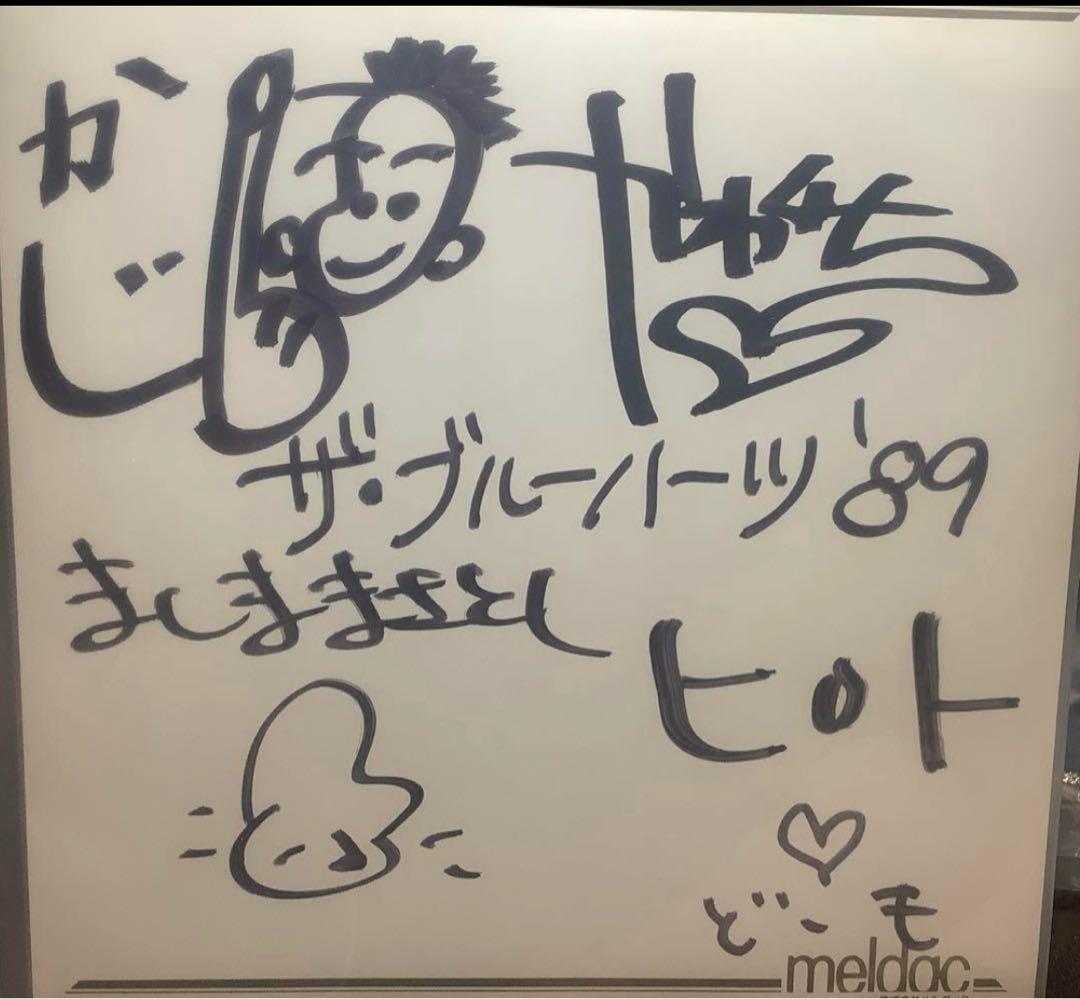 かじ
ザ・ブルーハーツ '89
ましままさとし
ヒロト
どーモ
meldac